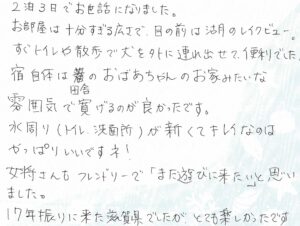 2泊3日でお世話になりました。
お部屋は十分すぎる広さで、目の前は湖のレイクビュー。
すぐトイレや散歩で犬を外に連れ出せて、便利でした。
宿自体は田舎のおばあちゃんのお家みたいな
雰囲気で寛げるのが良かったです。
水周り(トイレ、洗面所)が新くてキレイなのは
やっぱりいいですネ!
女将さんもフレンドリーで「また遊びに来たい」と思い
ました。
17年振りに来た滋賀県でしたが、とても楽しかったです